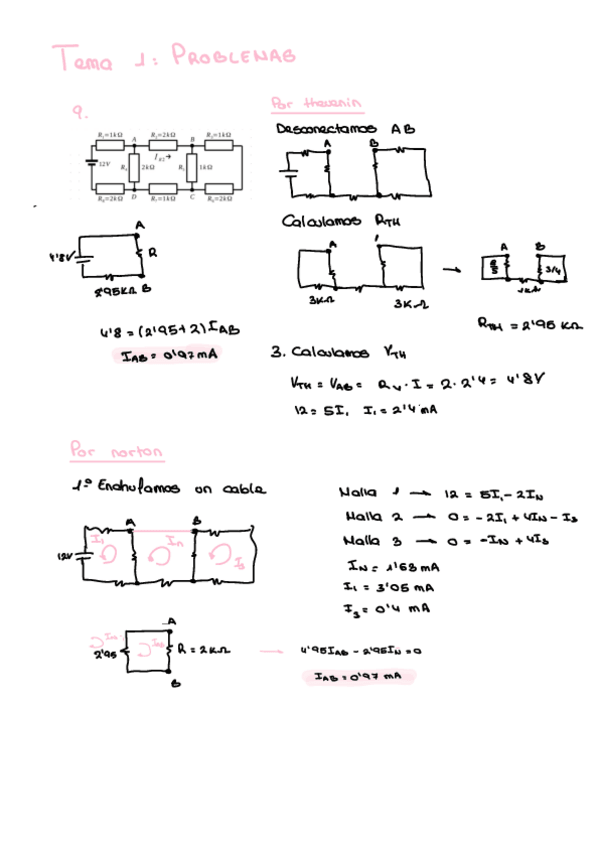 Tema 1: PROBLEMAS
9.
R₁=1kΩ A R₂=2kΩ B R₃=1kΩ
I_R2 →
12V R₄ 2kΩ R₅ 1kΩ
R₈=2kΩ D R₇=1kΩ C R₆=2kΩ
Por thevenin
Desconectamos AB
A B
Calculamos R_TH
A
3KΩ 3KΩ
A B
3/4
1KΩ
R_TH = 2'95 KΩ
A
4'8V R
2'95KΩ B
4'8 = (2'95+2) I_AB
I_AB = 0'97 mA
3. Calculamos V_TH
V_TH = V_AB = R₄ · I = 2 · 2'4 = 4'8V
12 = 5I₁ I₁ = 2'4 mA
Por norton
1º Enchufamos un cable
A B
12V I₁ I_N I₃
Malla 1 → 12 = 5I₁ - 2I_N
Malla 2 → 0 = -2I₁ + 4I_N - I₃
Malla 3 → 0 = -I_N + 4I₃
I_N = 1'63 mA
I₁ = 3'05 mA
I₃ = 0'4 mA
A
2'95 I_N I_AB R = 2KΩ
B
→ 4'95I_AB - 2'95I_N = 0
I_AB = 0'97 mA